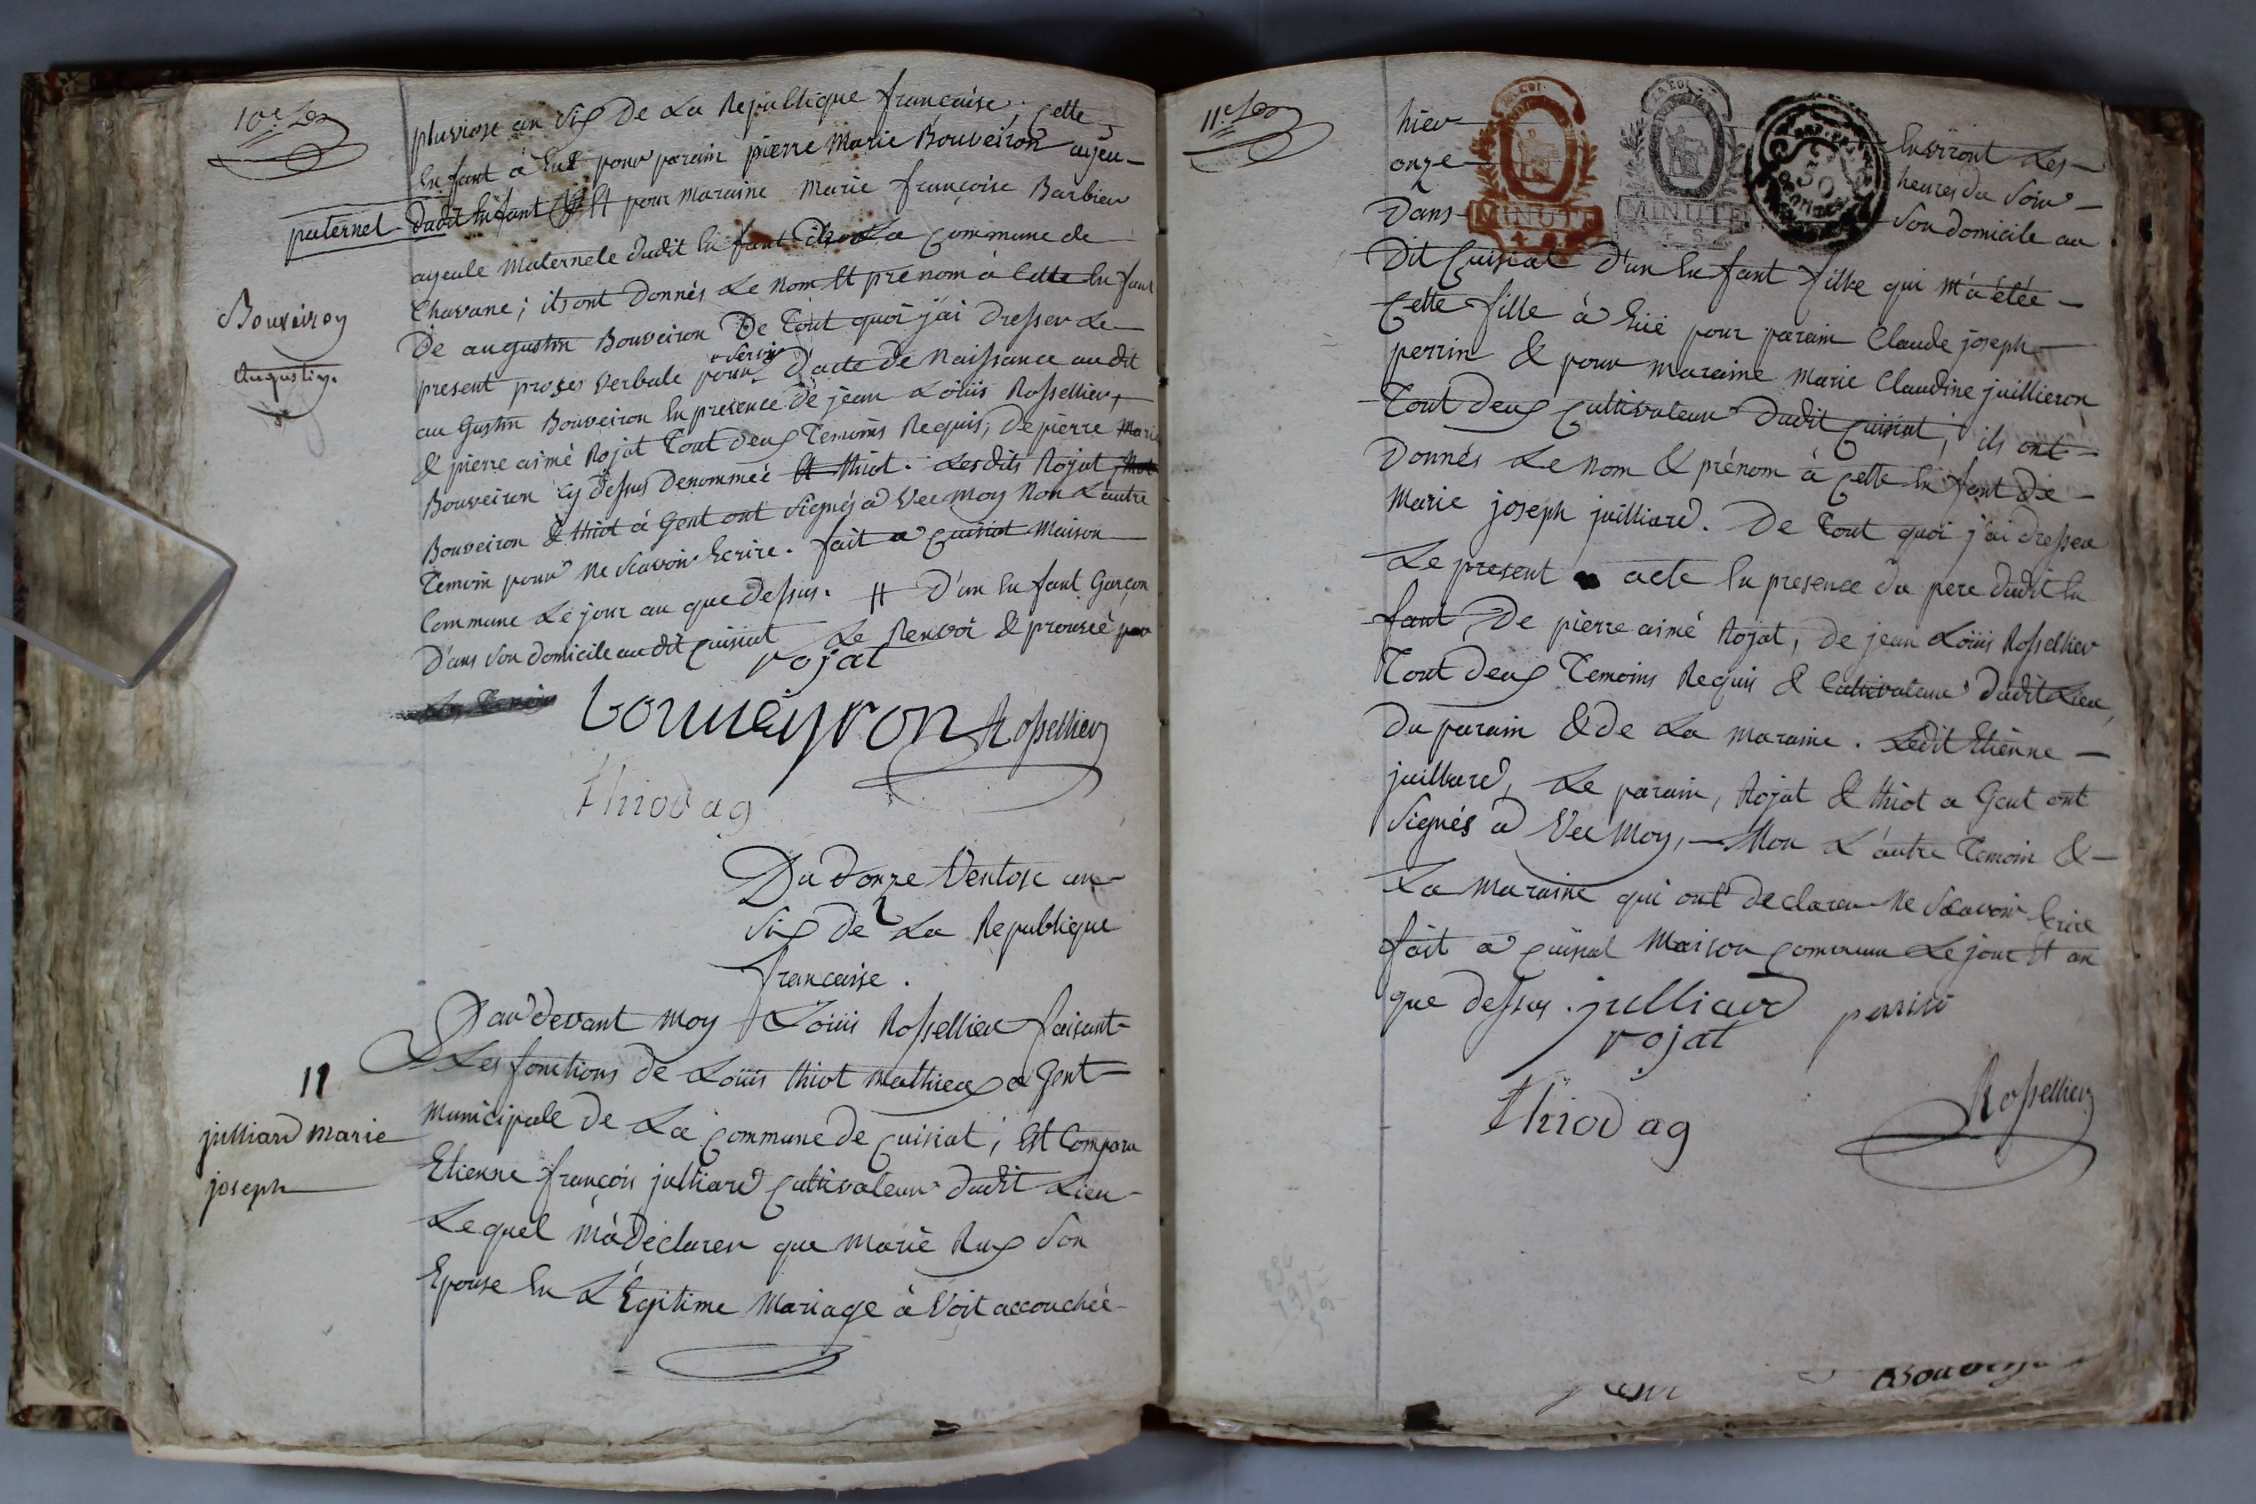 10e
pluviose an six De La Republique francaise. Cette
Enfant à Eut pour parain pierre Marie Bouveiron ayeu-
paternel dudit Enfant Et pour Maraine Marie françoise Barbier
ayeule Maternele dudit Enfant De La Commune de
Chavane; ils ont Donnés Le Nom Et prenom à Cette Enfant
De augustin Bouveiron De Tout quoi j'ai Dresser Le
present proses verbale pour servir D'acte de Naissance audit
Bouveiron
Augustin.
au Gustin Bouveiron En presence de jean Loüis Rossellier,
& pierre aimé Rojat Tout deux Temoins Requis, De pierre Marie
Bouveiron Cy dessus Denommeé Et thiot. Lesdits Rojat
Bouveiron & thiot à Gent ont signés a Vec Moy Non L'autre
Temoin pour Ne Scavoir Ecrire. fait a Cuisiat Maison
Commune Le jour au que Dessus. # D'un Enfant Garçon
D'ans Son domicile audit Cuisiat Le Renvoi & prouvé
rojat
bouveyron Rossellier
thiod ag
Du donze Ventose an
Six De La Republique
francaise.
Par devant moy Loüis Rossellier faisant
Les fonctions de Loüis thiot Mathieux a Gent
11
julliard marie
joseph
Municipale De La Commune de Cuisiat; Est Comparu
Etienne françois julliard Cultivateur dudit Lieu
Lequel m'a Declarer que Marie Rux Son
Epouse En L'Egitime Mariage à Voit accouchée
11e
hier Environt Les
onze heures du Soir
Dans Son domicile au
MINUTE
MINUTE
50
Dit Cuisiat D'un Enfant fille qui m'a étée
Cette fille à Eüe pour parain Claude joseph
perrin & pour maraine Marie Claudine juillieron
Tout deux Cultivateur Dudit Cuisiat; ils ont
Donnés Le Nom & prénom à Cette Enfant de
Marie joseph juilliard. De Tout quoi j'ai dresser
Le present acte En presence du pere dudit En
fant, De pierre aimé Rojat, de jean Loüis Rossellier
Tout deux Temoins Requis & Cultivateur dudit Lieu,
Du parain & de La maraine. Ledit Etienne
juilliard, Le parain, Rojat & thiot a Gent ont
Signés a Vec Moy, Non L'autre Temoin &
La Maraine qui ont declarer Ne Scavoir Ecrire
fait a Cuisiat Maison Commune Le jour Et an
que dessus. julliard perrin
rojat
thiod ag
Rossellier